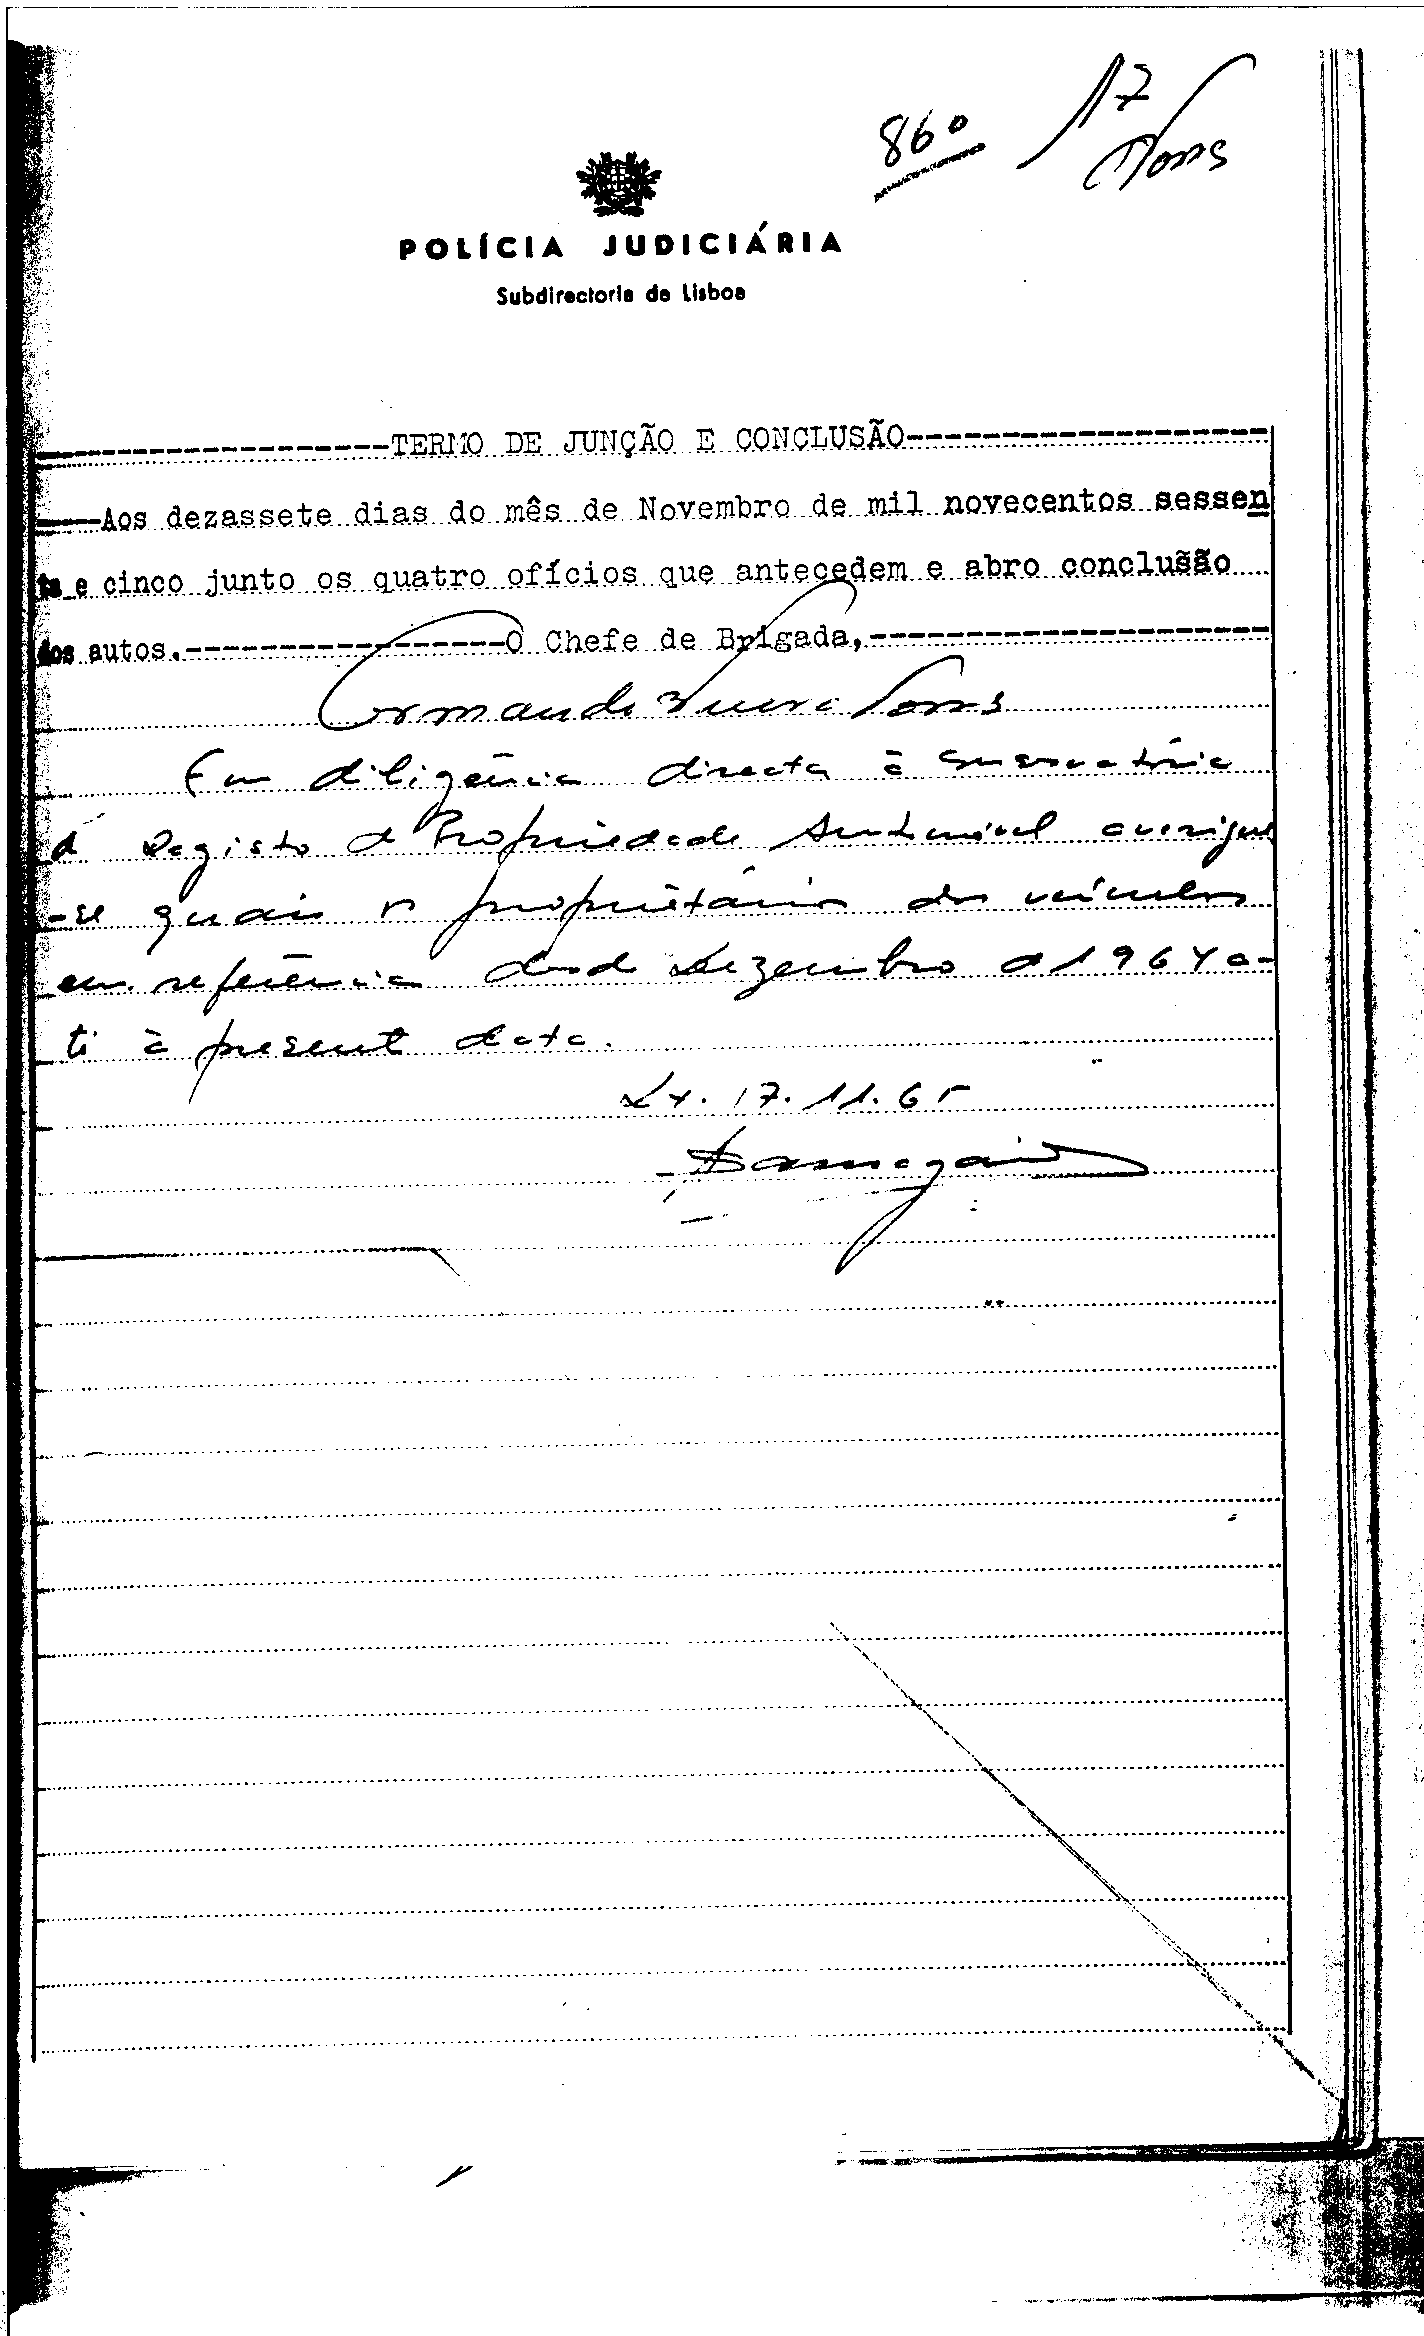 86º
17
POLÍCIA JUDICIÁRIA
Subdirectoria de Lisboa
-----------------TERMO DE JUNÇÃO E CONCLUSÃO-----------------
----Aos dezassete dias do mês de Novembro de mil novecentos sessen
ta e cinco junto os quatro ofícios que antecedem e abro conclusão
dos autos.-----------------O Chefe de Brigada,-------------------
Em diligência directa à Conservatória
d Registo d Propriedade Automóvel averigue
-se quais os proprietários dos veículos
em referência desde Dezembro d 1964 a-
té à presente data.
Lx. 17.11.65